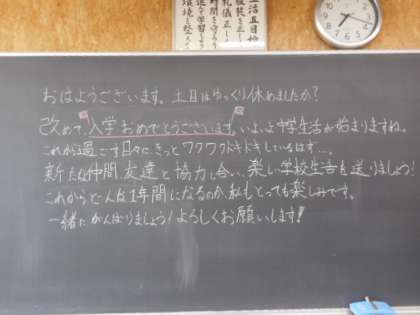 おはようございます。土日はゆっくり休めましたか?
改めて、入学おめでとうございます。いよいよ中学生活が始まりますね。
これから過ごす日々に、きっとワクワクドキドキしているはず…。
新たな仲間、友達と協力し合い、楽しい学校生活を送りましょう!
これからどんな1年間になるのか、私もとっても楽しみです。
一緒にがんばりましょう!よろしくお願いします!